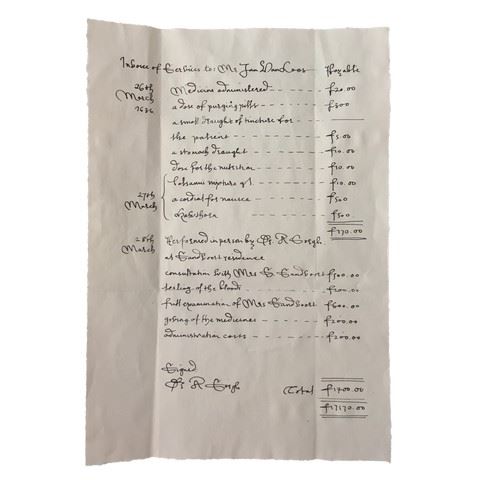 Invoice of Services to: Mr Jan Van Loos Payable
26th March 1636 Medicine administered f20.00
a dose of purging pills f500
a small draught of tincture for
the patient f5.00
a stomach draught f10.00
dose for the f10.00
mixture f10.00
27th March a cordial for nausea f500
f500
f770.00
28th March Performed in person by Dr. R
at Sandvoort residence
consultation with Mrs S. Sandvoort f500.00
testing of the blood f200.00
full examination of Mrs Sandvoort f600.00
giving of the medicines f200.00
administration costs f200.00
Signed
Dr R
Total f1400.00
f17170.00